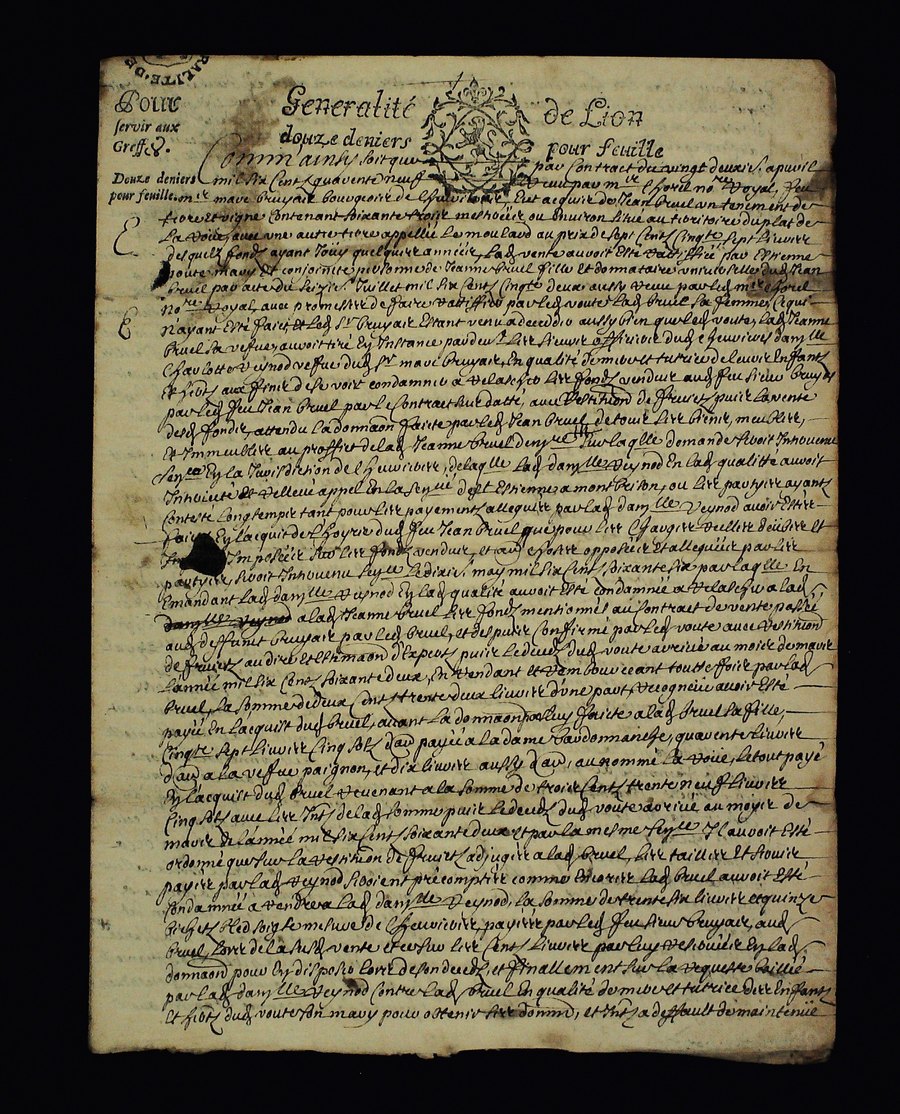 RALITE·DE
Pour
servir aux
Greffes.
Generalité de Lion
douze deniers pour feuille
Douze deniers
pour feuille.
Comm'ainsy soit que par Contract du vingt deuxis. apvril
mil six Centz quarente neuf Receu par mr Choril nore Royal, feu
mr marc bruyair bourgeois de Chevrieres Eut acquis de Jean bruel un tenement de
terre Et vigne Contenant soixante trois mestiers ou Environ situé au territoire du plat de
La Voue, avec une autre terre appellée Le moulard au prix de sept Centz Cinqte sept Livres
desquelz fondz ayant Jouy quelques années, Lade vente auroit Esté rattiffiée par Estienne
voute mary et conjointe personne de Jeanne bruel fille et donnataire universelle dud Jean
bruel par acte du Juillet mil six Centz Cinqte deux aussy receu par led mr Choril
nore Royal, avec promesse de faire rattiffier par led voute lad bruel sa femme, Ce qui
n'ayant Esté fait, et led Sr bruyair Estant venu a deceder aussy bien que led voute, lad Jeanne
bruel sa vefve, auroit tiré En Instance pardevt les sieurs officiers dud Chevrieres damlle
Charlotte Reynod vefve dud Sr marc bruyair, En qualité de mere et tutrice de leurs Enfants
Et hers, aux fins de se voir condamner a relascher les fondz vendus aud feu sieur bruyair
par led feu Jean bruel par le Contract sus datté, avec Restitution de fruits puis la vente
desd fondz, attendu la donnaon faite par led Jean bruel de tous ses biens, meubles,
Et Immeubles au proffit de lad Jeanne bruel sur laqlle demande seroit Intervenu
senyce En la Jurisdiction de Chevrieres, de laqlle lad damlle Reynod En lad qualitté auroit
Interjetté Et rellevé appel En la senyce de st Estienne a montbrison, ou les partyes ayant
Contesté longtemps tant pour les payements allegués par lad damlle Reynod avoir Esté
faits En lacquit de l'hoyrie dud feu Jean bruel que pour les Charges vieilles deubtes et
Imposées sur les fondz vendus, et aud choses opposées Et alleguées par les
partyes, seroit Intervenu senyce Le dixis. may mil six Cent soixante six par laqlle En
Emandant lad damlle Reynod En lad qualité auroit Esté condamnée a relascher a lad
damlle Reynod a lad Jeanne bruel les fondz mentionnés au Contract de vente passé
aud deffunct bruyair par led bruel, et despuis Confirmé par led voute avec restitution
de fruits au dire et Estimaon d'Expertz puis le decedz dud voute arrivé au mois de mars
L'année mil six Centz soixante deux, En rendant et remboursant toutesfois par lad
bruel, la somme de deux Cent trente deux livres d'une part, recogneüe avoir Esté
payée En lacquist dud bruel, avant la donnaon par luy faite a lad bruel sa fille,
Cinqte sept livres Cinq solz d'au payée a la dame bardonnanche, quarente livres
d'au a la vefve paignon, et dix livres aussy d'au, au nommé la Voue, le tout payé
En l'acquist dud bruel revenant a la somme de trois Centz trente neuf livres
Cinq solz avec les Intz de lad somme puis le decedz dud voute arrivé au moys de
mars de l'année mil six Centz soixante deux et par la mesme senyce Il auroit Esté
ordonné que sur la restituon de fruits adjugée a lad bruel, les tailles Et
payées par lad Reynod seroient précomptées comme Encores lad bruel auroit Esté
Condamnée a rendre a lad damlle Reynod, la somme de trente six livres et quinze
bichets bled soigle mesure de Chevrieres, payées par led feu sieur bruyair, aud
bruel, lors de la susd vente et sur les Centz livres par luy reservées En lad
donnaon pour En disposer lors de son decedz, et finallement sur la requeste baillée
par lad damlle Reynod Contre lad bruel En qualité de mere et tutrice des Enfants
Et hers dud voute son mary pour obtenir ses domm. et Intz a deffault de maintenüe